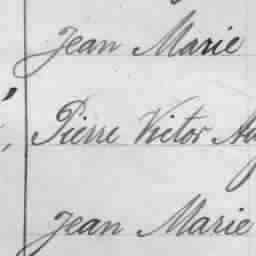 Jean Marie
Pierre Victor
Jean Marie